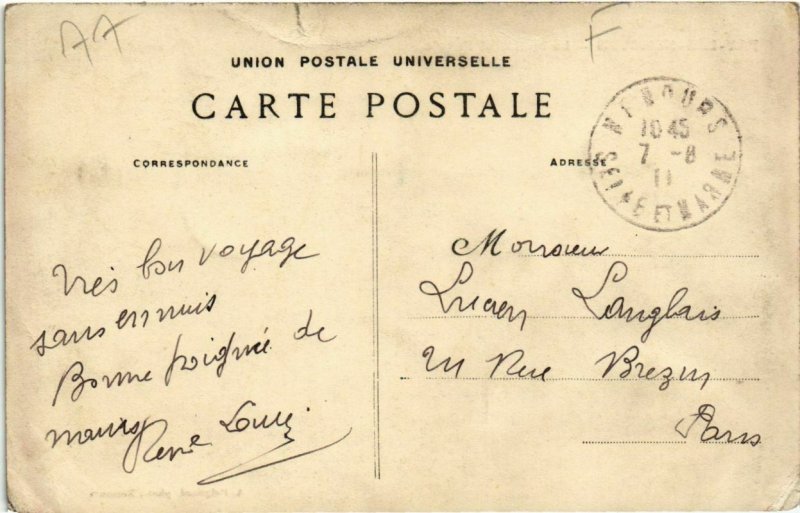 AA
F
UNION POSTALE UNIVERSELLE
CARTE POSTALE
CORRESPONDANCE
ADRESSE
NEMOURS
10 45
7 - 8
11
SEINE ET MARNE
Très bon voyage
sans ennuis
Bonne poignée de
mains
René Louis
Monsieur
Lucien Langlais
Rue Brezin
Paris